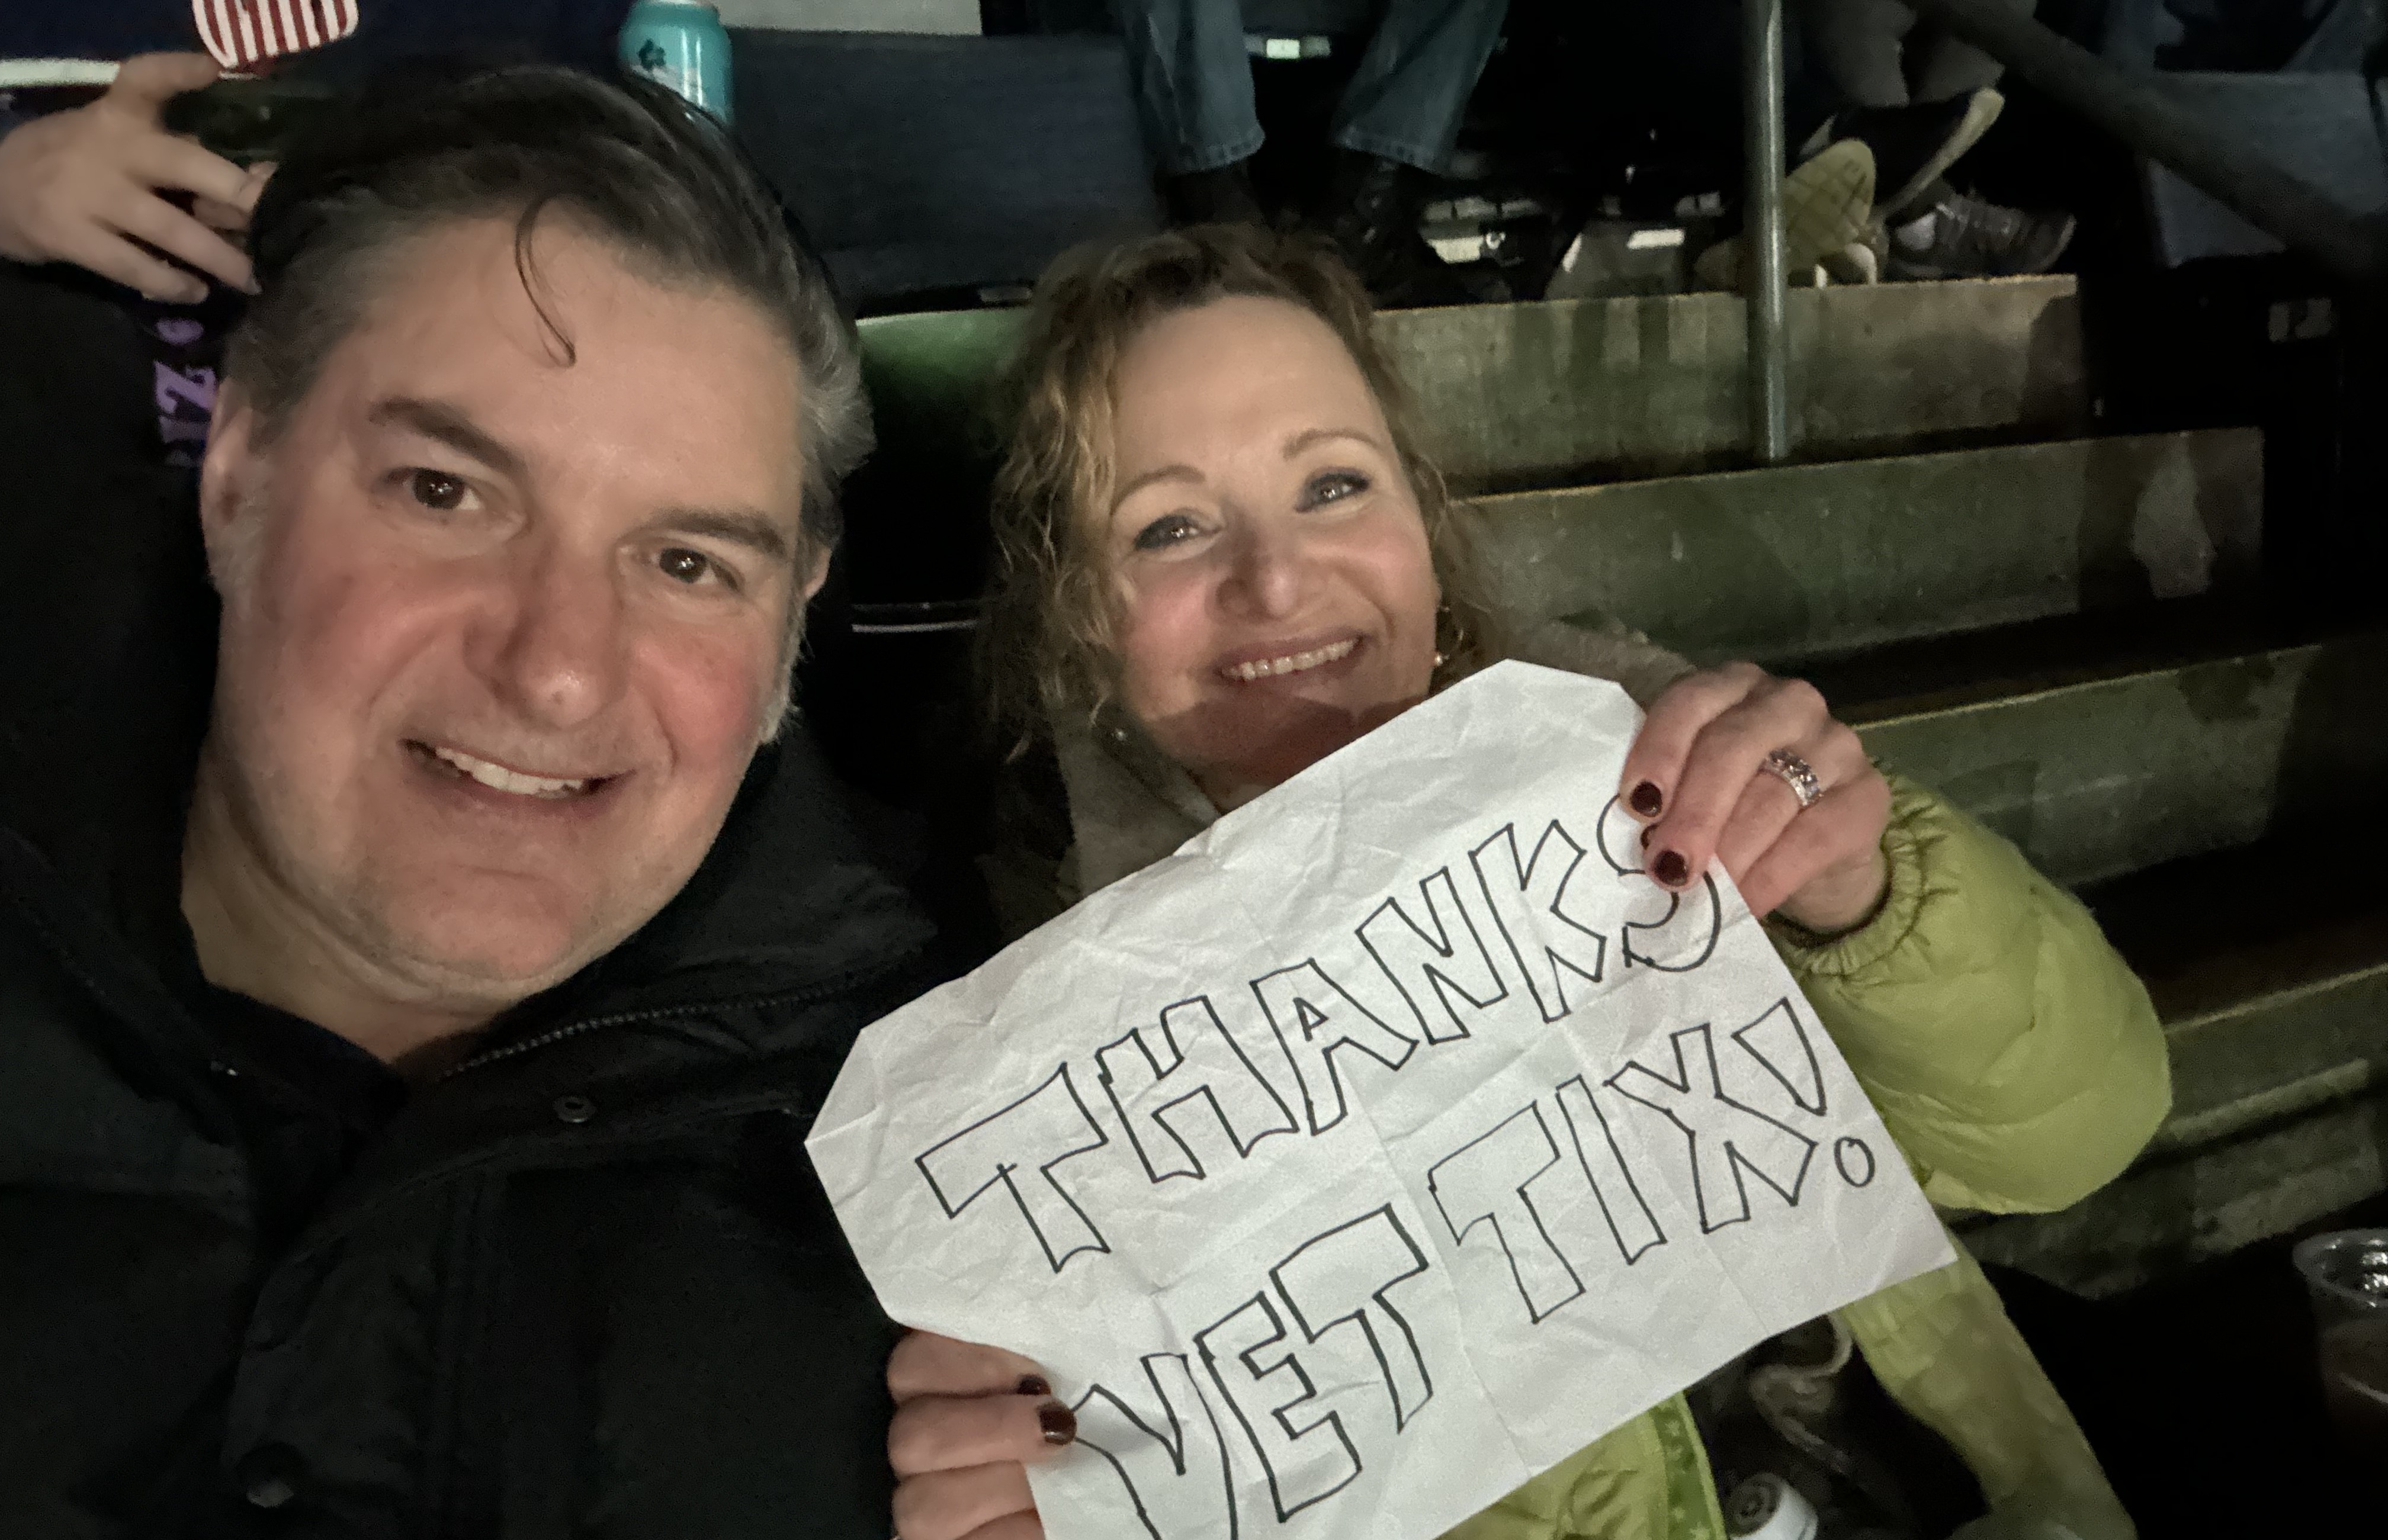 THANKS
VET TIX!